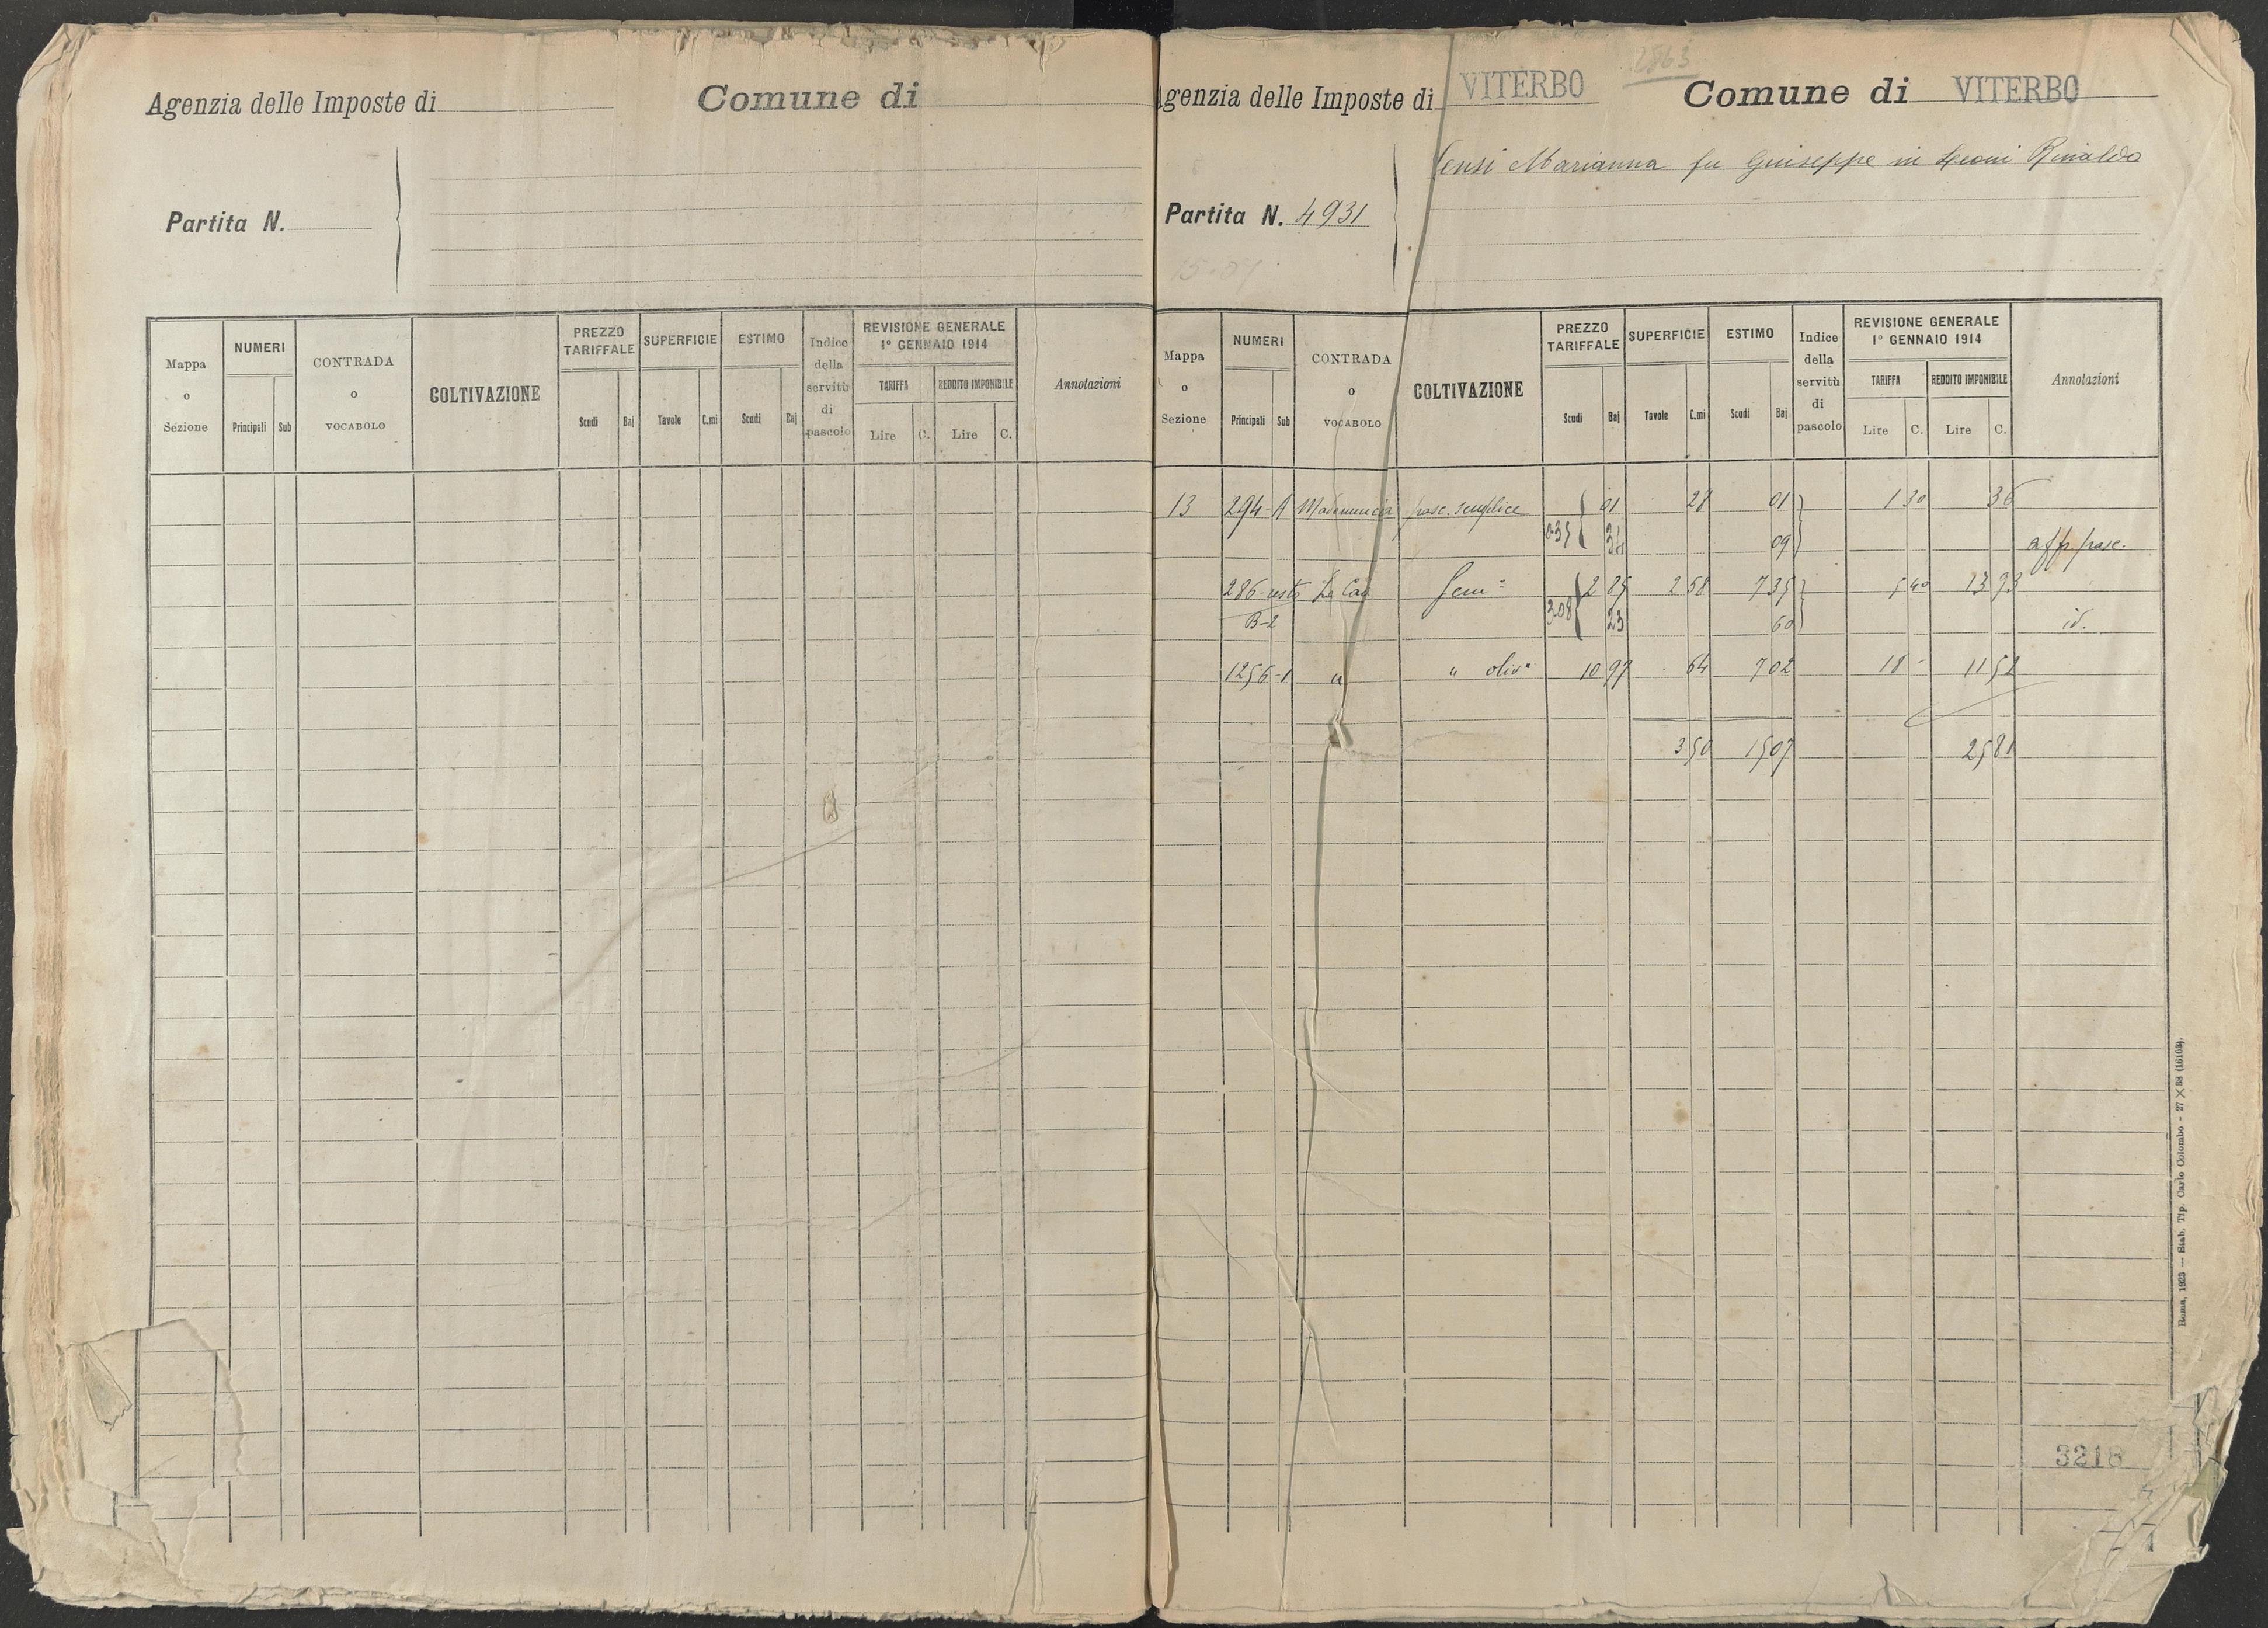 Agenzia delle Imposte di
Comune di
Partita N.
Mappa o Sezione
NUMERI
Principali Sub
CONTRADA o VOCABOLO
COLTIVAZIONE
PREZZO TARIFFALE
Scudi Baj
SUPERFICIE
Tavole C.mi
ESTIMO
Scudi Baj
Indice della servitù di pascolo
REVISIONE GENERALE
1º GENNAIO 1914
TARIFFA
Lire C.
REDDITO IMPONIBILE
Lire C.
Annotazioni
genzia delle Imposte di VITERBO
2863
Comune di VITERBO
Sensi Marianna fu Giuseppe in Leoni Rinaldo
Partita N. 4931
15-07
Mappa o Sezione
NUMERI
Principali Sub
CONTRADA o VOCABOLO
COLTIVAZIONE
PREZZO TARIFFALE
Scudi Baj
SUPERFICIE
Tavole C.mi
ESTIMO
Scudi Baj
Indice della servitù di pascolo
REVISIONE GENERALE
1º GENNAIO 1914
TARIFFA
Lire C.
REDDITO IMPONIBILE
Lire C.
Annotazioni
13 294-A pasc. semplice 01 28 01 1 30 36
0 35 34 09 aff. pasc.
286 resto Sem.º 2 85 2 58 7 35 5 40 13 93
B-2 3 08 23 60 id.
1256-1 " " oliv.º 10 97 64 7 02 18 - 11 52
3 50 15 07 25 81
3218
Roma, 1923 — Stab. Tip. Carlo Colombo - 27 × 38 (16103).